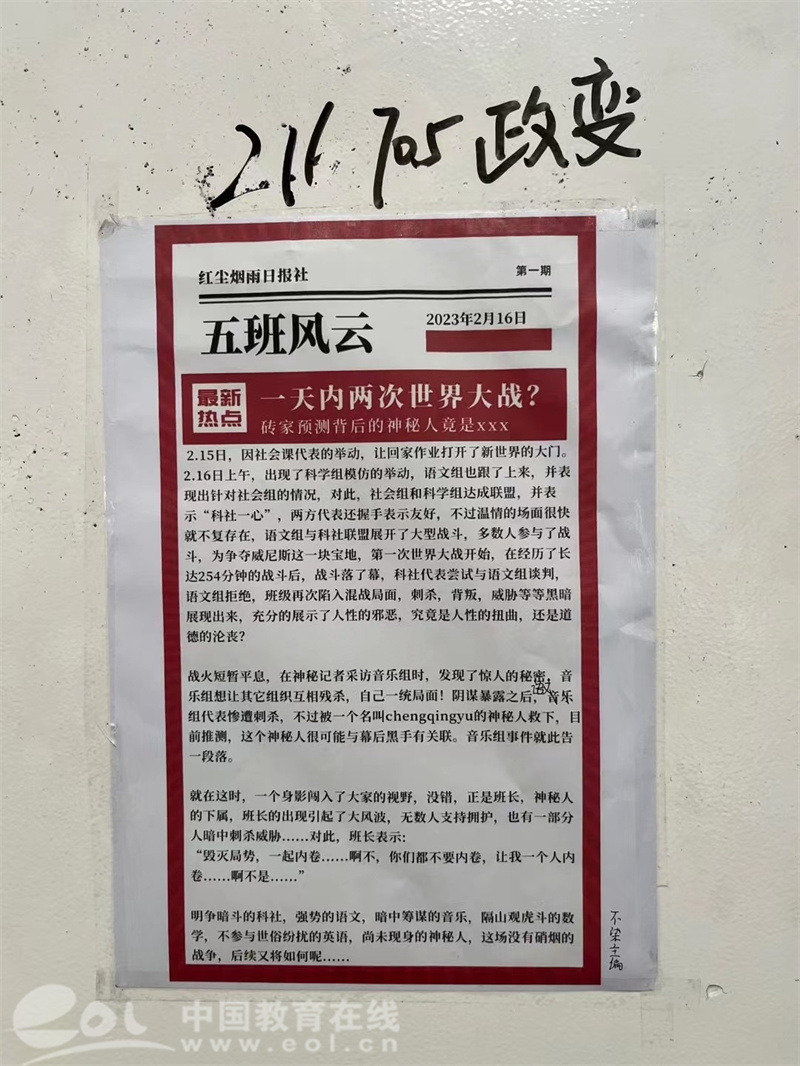 211 705 政变
红尘烟雨日报社
第一期
五班风云
2023年2月16日
最新
热点
一天内两次世界大战？
砖家预测背后的神秘人竟是xxx
2.15日，因社会课代表的举动，让回家作业打开了新世界的大门。
2.16日上午，出现了科学组模仿的举动，语文组也跟了上来，并表
现出针对社会组的情况，对此，社会组和科学组达成联盟，并表
示“科社一心”，两方代表还握手表示友好，不过温情的场面很快
就不复存在，语文组与科社联盟展开了大型战斗，多数人参与了战
斗，为争夺威尼斯这一块宝地，第一次世界大战开始，在经历了长
达254分钟的战斗后，战斗落了幕，科社代表尝试与语文组谈判，
语文组拒绝，班级再次陷入混战局面，刺杀，背叛，威胁等等黑暗
展现出来，充分的展示了人性的邪恶，究竟是人性的扭曲，还是道
德的沦丧？
战火短暂平息，在神秘记者采访音乐组时，发现了惊人的秘密，音
乐组想让其它组织互相残杀，自己一统局面！阴谋暴露之后，音乐
组代表惨遭刺杀，不过被一个名叫chengqingyu的神秘人救下，目
前推测，这个神秘人很可能与幕后黑手有关联。音乐组事件就此告
一段落。
就在这时，一个身影闯入了大家的视野，没错，正是班长，神秘人
的下属，班长的出现引起了大风波，无数人支持拥护，也有一部分
人暗中刺杀威胁……对此，班长表示：
“毁灭局势，一起内卷……啊不，你们都不要内卷，让我一个人内
卷……啊不是……”
明争暗斗的科社，强势的语文，暗中筹谋的音乐，隔山观虎斗的数
学，不参与世俗纷扰的英语，尚未现身的神秘人，这场没有硝烟的
战争，后续又将如何呢……
不染主编
eol 中国教育在线
www.eol.cn